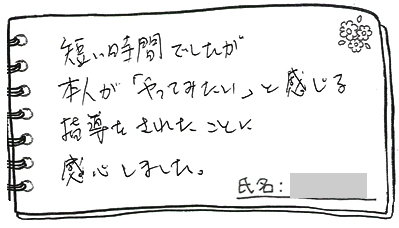 短い時間でしたが
本人が「やってみたい」と感じる
指導をされたことに
感心しました。
氏名: